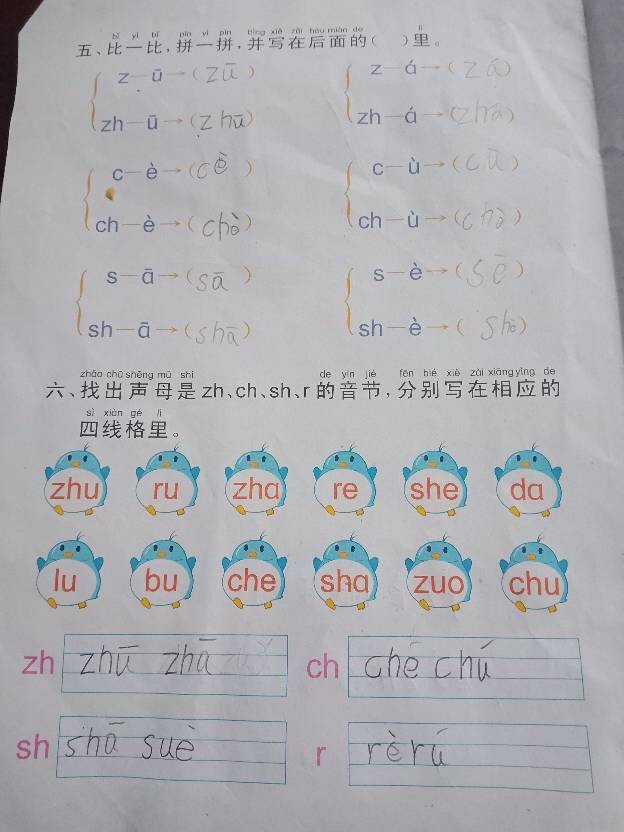 bǐ yi bǐ pīn yi pīn bìng xiě zài hòu miàn de lǐ
五、比一比,拼一拼,并写在后面的( )里。
z—ū→(zū) z—á→(zá)
zh—ū→(zhū) zh—á→(zhá)
c—è→(cè) c—ù→(cù)
ch—è→(chè) ch—ù→
s—ā→(sā) s—è→
sh—ā→(shā) sh—è→
zhǎo chū shēng mǔ shì de yīn jié fēn bié xiě zài xiāng yìng de
六、找出声母是 zh、ch、sh、r 的音节,分别写在相应的
sì xiàn gé lǐ
四线格里。
zhu ru zha re she da
lu bu che sha zuo chu
zh zhū zhā ch chē chú
sh shā suè r rè rú